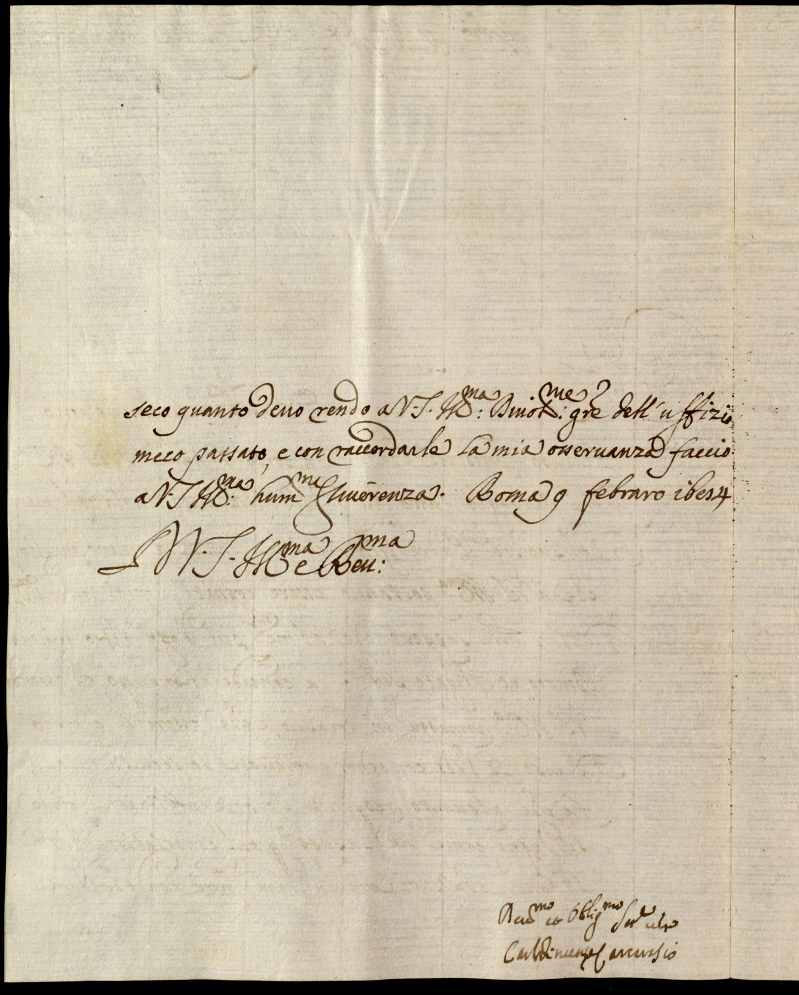 seco quanto devo rendo a V.S. Ill.ma: Divot.me gre dell'uffizio
meco passato, e con raccordarle la mia osservanza faccio
a V.S. Ill.ma: hum.me riverenza. Roma 9 febraro
V.S. Ill.ma e Rev:ma
Devo.mo et Oblig.mo Ser.re